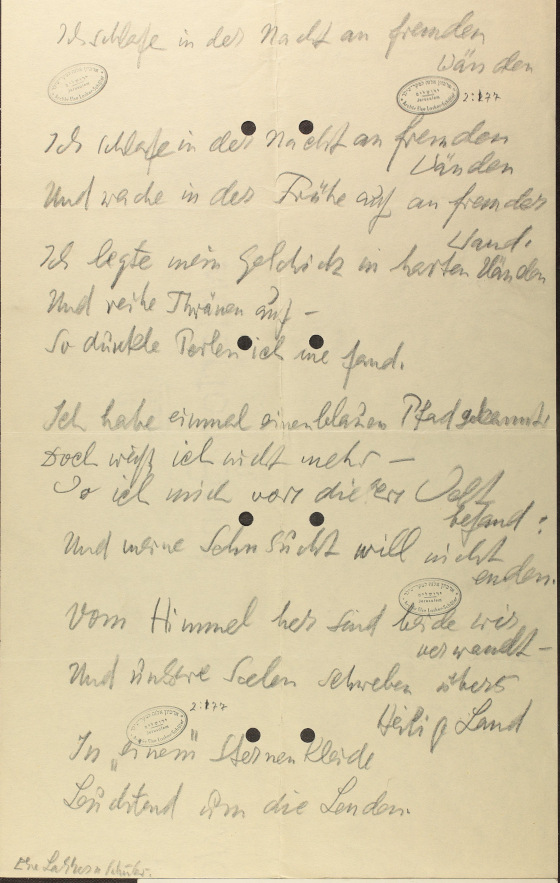 Ich schlafe in der Nacht an fremden
Wänden
2:177
Ich schlafe in der Nacht an fremden
Wänden
Und wache in der Frühe auf an fremder
Wand.
Ich legte mein Geschick in harten Händen
Und reihe Thränen auf –
So dunkle Perlen ich nie fand.
Ich habe einmal einen blauen Pfad gekannt
Doch weiß ich nicht mehr –
Wo ich mich vor dieser Welt
befand:
Und meine Sehnsucht will nicht
enden.
Vom Himmel her sind beide wir
verwandt –
Und unsere Seelen schweben übers
Heilig Land
2:177
In „einem" Sternenkleide
Leuchtend um die Lenden.
Else Lasker-Schüler.